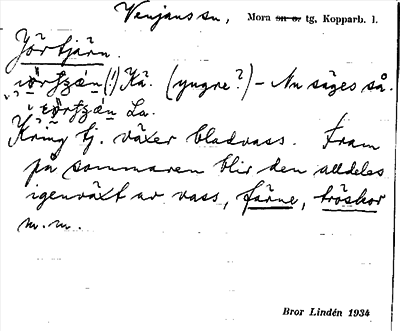 Venjans sn, Mora sn o. tg, Kopparb. l.
Jörtjärn.
(!) Kä. (yngre?) – Nu säges så.
La.
Kring tj. växer bladvass. Fram
på sommaren blir den alldeles
igenväxt av vass, färne, tröskor
m.m.
Bror Lindén 1934